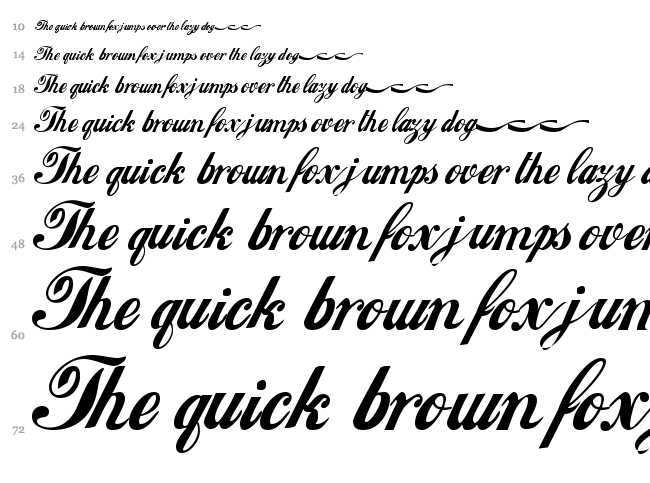 10 The quick brown fox jumps over the lazy dog
14 The quick brown fox jumps over the lazy dog
18 The quick brown fox jumps over the lazy dog
24 The quick brown fox jumps over the lazy dog
36 The quick brown fox jumps over the lazy d
48 The quick brown fox jumps over
60 The quick brown fox jum
72 The quick brown fox j